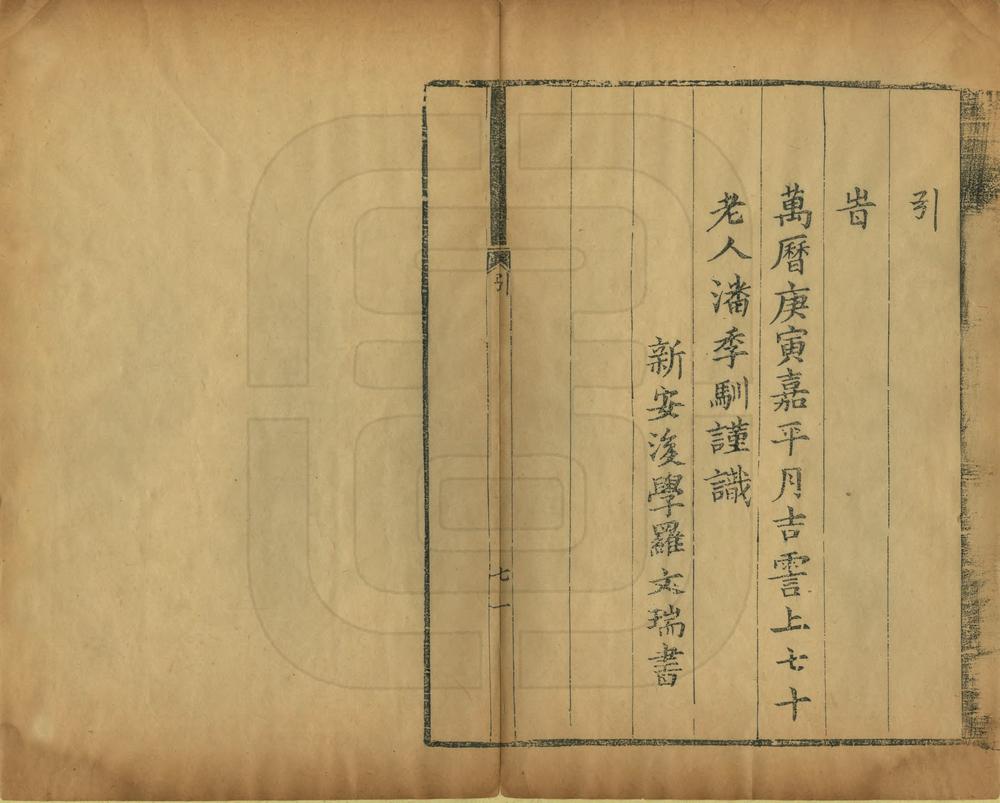 引
旹
萬曆庚寅嘉平月吉霅上七十
老人潘季馴謹識
新安後學羅文瑞書
引
七
一